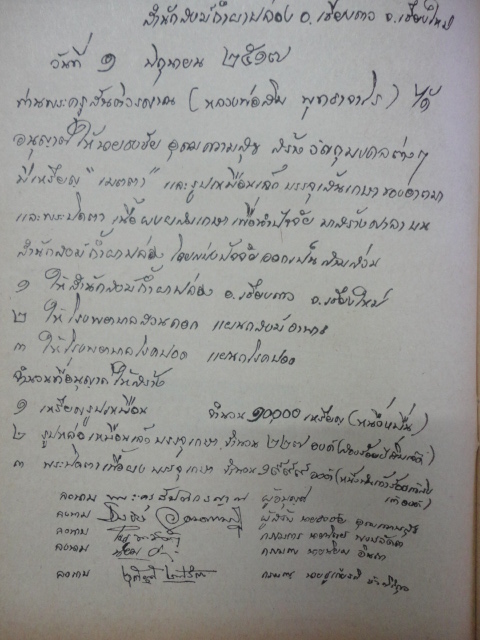 สำนักสงฆ์ถ้ำผาปล่อง อ.เชียงดาว จ.เชียงใหม่
วันที่ ๑ มิถุนายน ๒๕๑๗
ท่านพระครูสันติวรญาณ (หลวงพ่อสิม พุทธาจาโร) ได้
อนุญาตให้นายธงชัย อุดมความสุข สร้างวัตถุมงคลต่างๆ
มีเหรียญ "เมตตา" และรูปเหมือนเล็ก บรรจุเส้นเกษาของอาตมา
และพระปิดตา เนื้อผงผสมเกษา เพื่อนำปัจจัย มาสร้างศาลาบน
สำนักสงฆ์ถ้ำผาปล่อง โดยแบ่งปัจจัยออกเป็นสามส่วน
๑ ให้สำนักสงฆ์ถ้ำผาปล่อง อ.เชียงดาว จ.เชียงใหม่
๒ ให้โรงพยาบาลสวนดอก แผนกสงฆ์อาพาธ
๓ ให้โรงพยาบาลโรคปอด แผนกโรคปอด
จำนวนที่อนุญาตให้สร้าง
๑ เหรียญรูปเหมือน จำนวน ๑๐,๐๐๐ เหรียญ (หนึ่งหมื่น)
๒ รูปหล่อเหมือนเล็ก บรรจุเกษา จำนวน ๒๒๗ องค์ (สองร้อยยี่สิบเจ็ด)
๓ พระปิดตาเนื้อผง บรรจุเกษา จำนวน
ลงนาม พระครูสันติวรญาณ ผู้อนุญาต
ลงนาม ผู้สร้าง นายธงชัย อุดมความสุข
ลงนาม กรรมการ
ลงนาม กรรมการ
ลงนาม กรรมการ